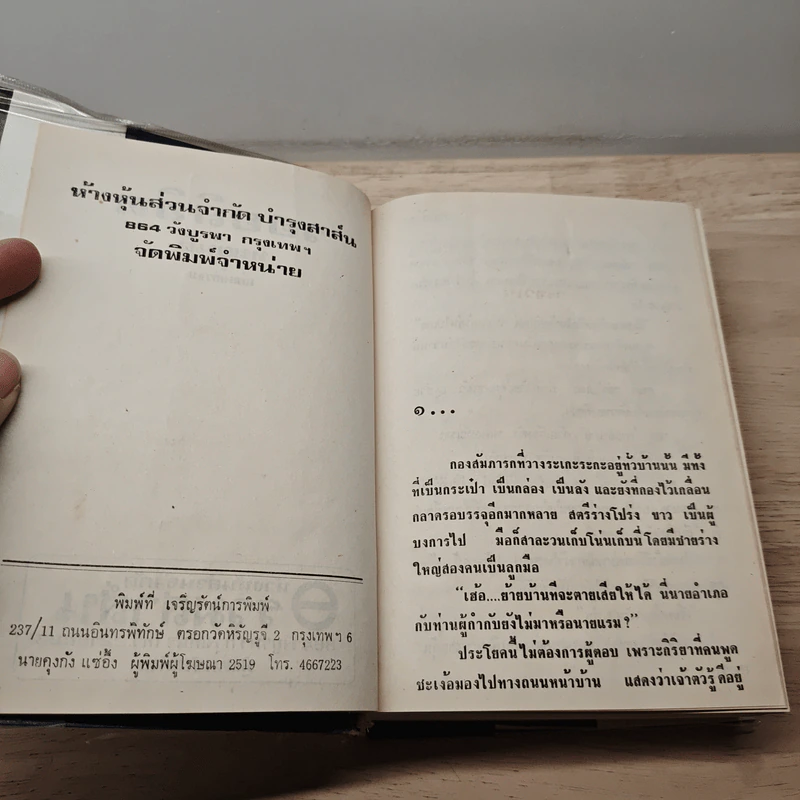 ห้างหุ้นส่วนจำกัด บำรุงสาส์น
864 วังบูรพา กรุงเทพฯ
จัดพิมพ์จำหน่าย
พิมพ์ที่ เจริญรัตน์การพิมพ์
237/11 ถนนอินทรพิทักษ์ ตรอกวัดหิรัญรูจี 2 กรุงเทพฯ 6
นายคุงกัง แซ่อึ้ง ผู้พิมพ์ผู้โฆษณา 2519 โทร. 4667223
๑...
กองสัมภารกที่วางระเกะระกะอยู่ทั่วบ้านนั้น มีทั้ง
ที่เป็นกระเป๋า เป็นกล่อง เป็นลัง และยังที่กองไว้เกลื่อน
กลาดรอบรรจุอีกมากหลาย สตรีร่างโปร่ง ขาว เป็นผู้
บงการไป มือก็สาละวนเก็บโน่นเก็บนี่ โดยมีชายร่าง
ใหญ่สองคนเป็นลูกมือ
“เฮ้อ....ย้ายบ้านทีจะตายเสียให้ได้ นี่นายอำเภอ
กับท่านผู้กำกับยังไม่มาหรือนายแรม?”
ประโยคนี้ไม่ต้องการผู้ตอบ เพราะกิริยาที่คนพูด
ชะเง้อมองไปทางถนนหน้าบ้าน แสดงว่าเจ้าตัวรู้ดีอยู่